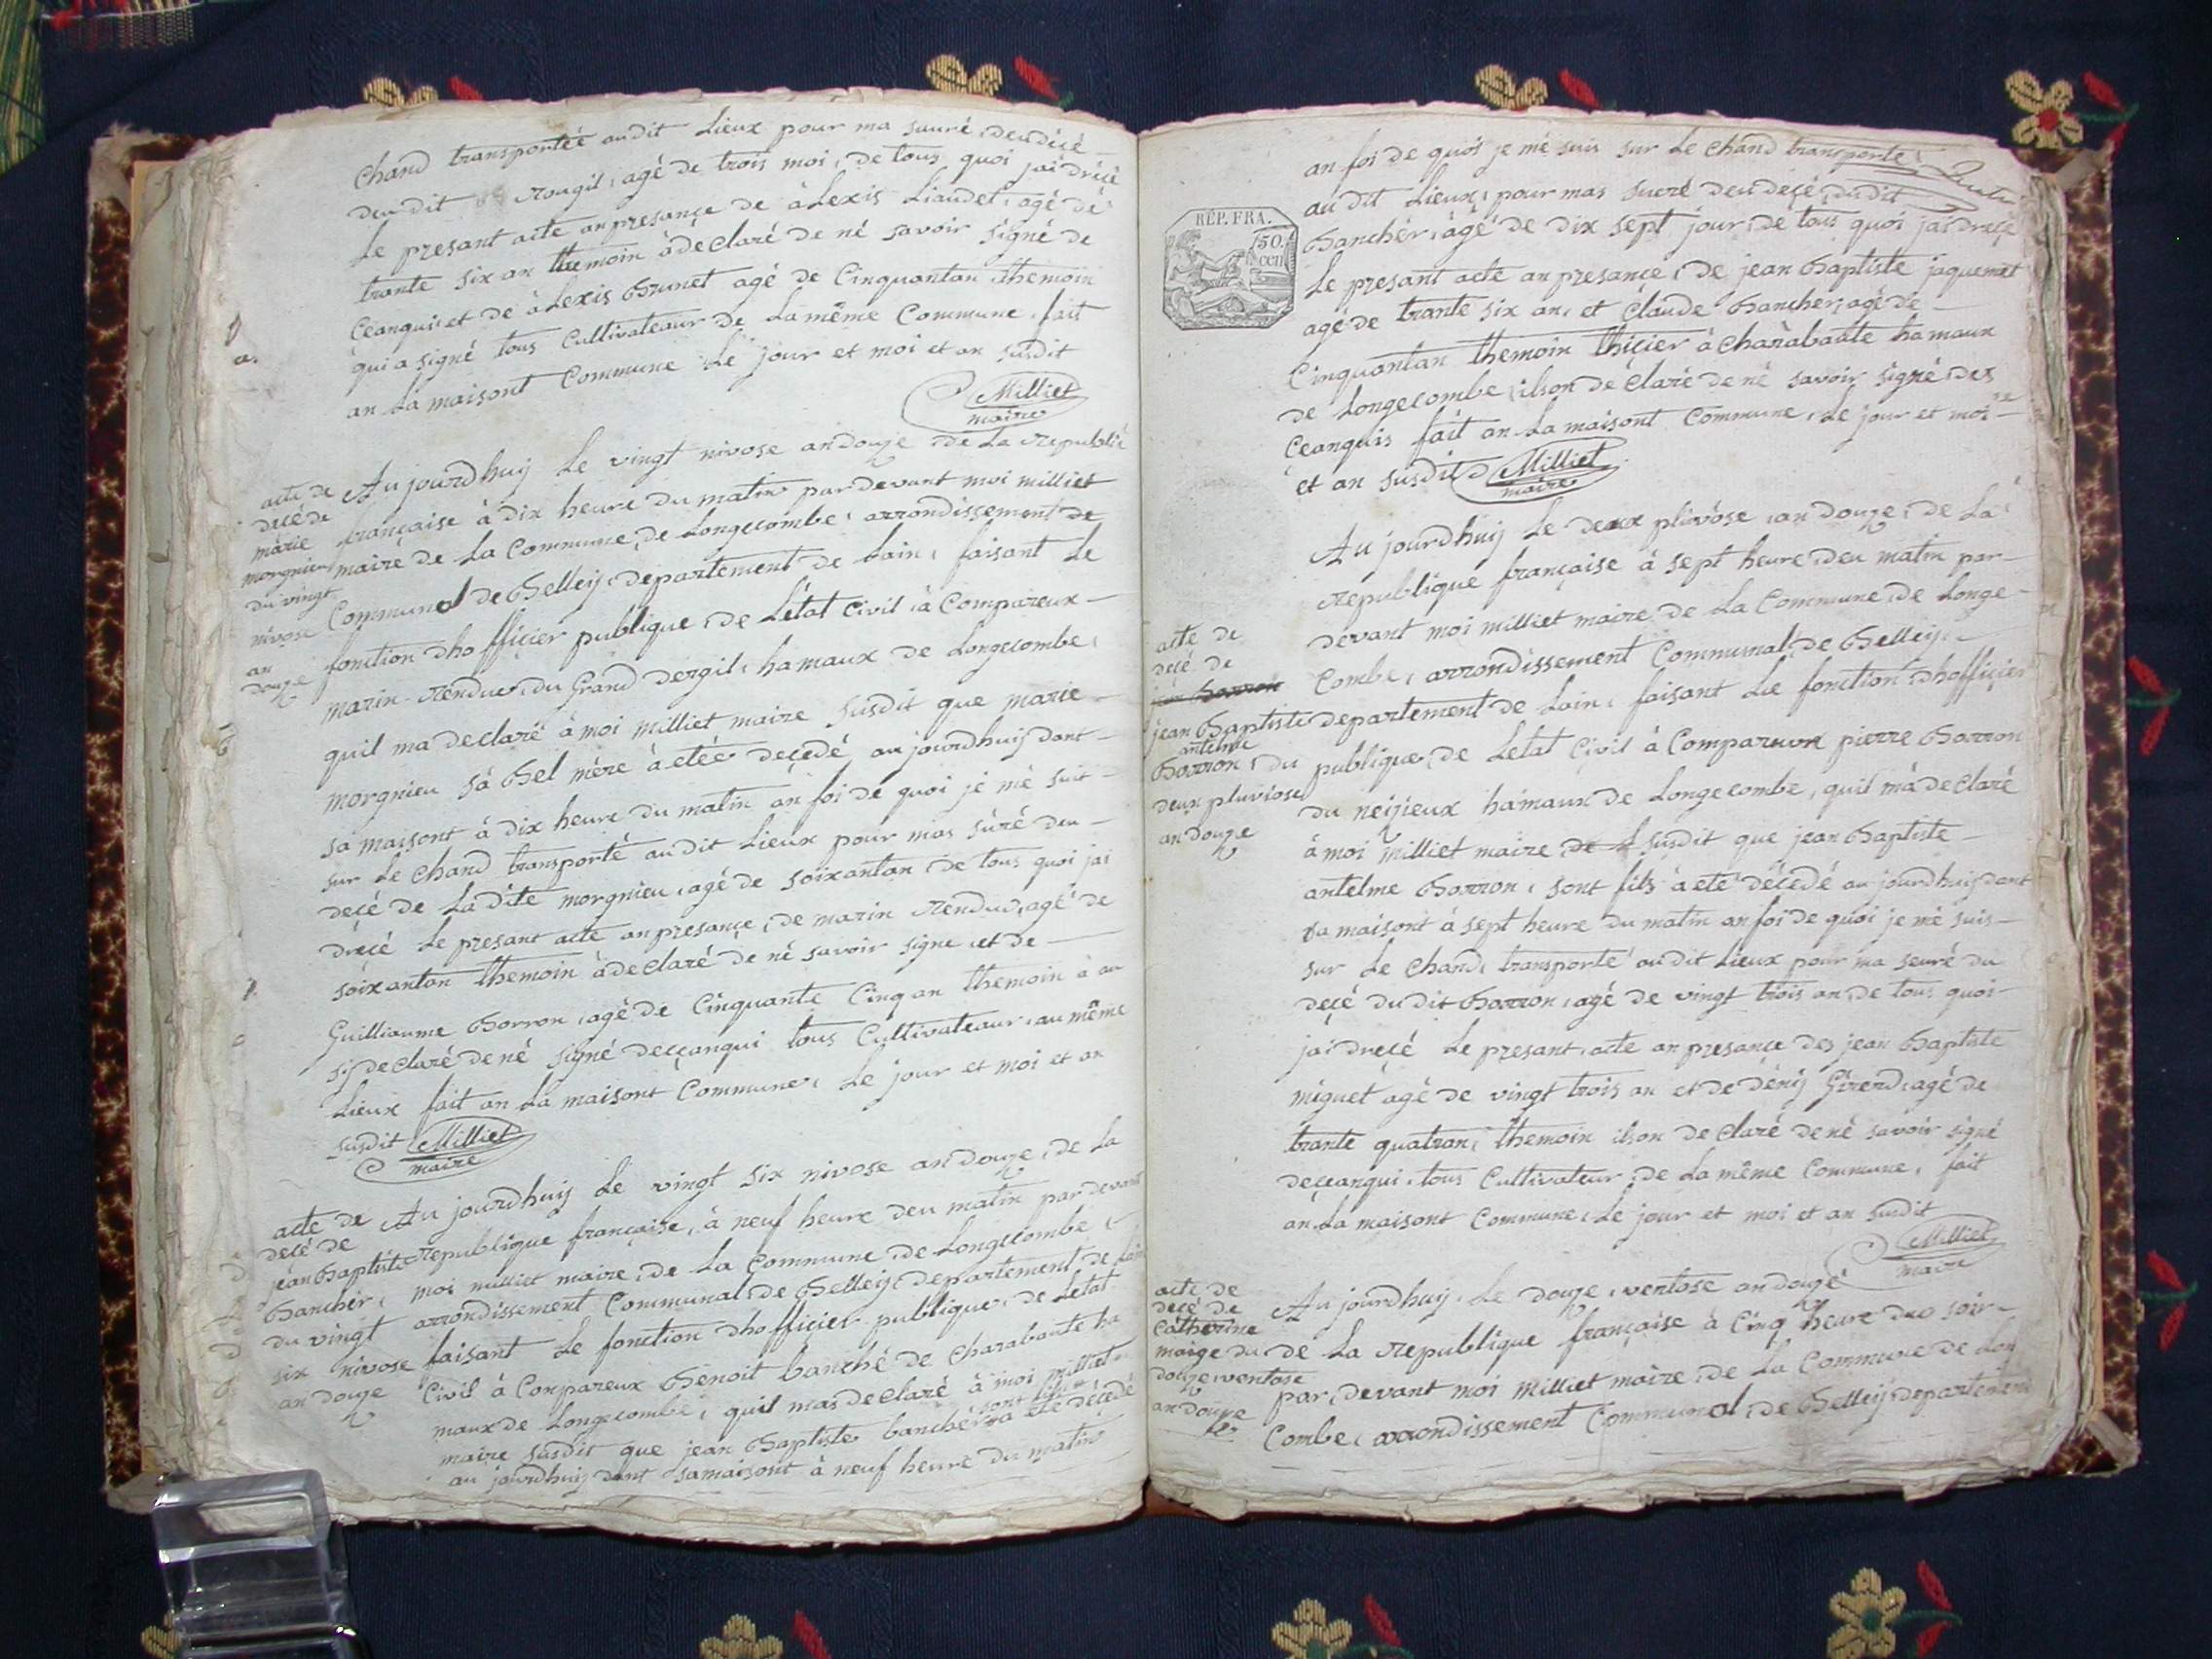 chand transportéé audit Lieux pour ma suuré deudéçé
deudit rougil, agé de trois moi, de tous quoi jai dréçé
Le presant acte anpresançe de àLexis Liaudet, agé dé
trante six an themoin àdeClaré de né savoir signé de
Ceanqui et de àLexis Brunet agé de Cinquantan themoin
quia signé tous Cultivateaur de La même Commune. fait
an La maisont Commune Le jour et moi et an susdit
Milliet
maire
acte de
decé de
marie
morgnieu
du vingt
nivose
an
douze
Aujourdhuij Le vingt nivose andouze de La republi
française à dix heure du matin pardevant moi milliet
maire de La Commune de Longecombe, arrondissement de
Communal de Belleij, departement de Lain, faisant Le
fonction dhofficier publique de Létat civil à Compareux
marin rendue du Grand dergil, hamaux de Longecombe,
quil ma declaré à moi milliet maire susdit que marie
morgnieu sà Bel mère à etéé deçedé aujourdhuij dant
sa maisont à dix heure du matin an foi de quoi je mé suit
sur Le chand transporté audit Lieux pour mas suré deu
deçé de Ladite morgnieu, agé de soixantan de tous quoi jai
dreçé Le presant acte anpresançe de marin rendud, agé de
soixantan themoin àdeclaré de né savoir signe et de
Guilliaume Borron, agé de Cinquante Cinq an themoin à au
sij declaré de né signé deççanqui tous Cultivateaur au même
Lieux fait an La maisont Commune, Le jour et moi et an
susdit Milliet
maire
acte de
decé de
jean Baptiste
Bancher,
du vingt
six nivose
an douze
Aujourdhuij Le vingt six nivose an douze, de La
republique française, à neuf heure deu matin par devant
moi milliet maire, de La Commune de Longecombe,
arrondissement Communal de Belleij departement de Lain
faisant Le fonction dhofficier publique, de Létat
Civil à Conpareux Benoit banché de charabaute ha
maux de Longecombe, quil mas declaré à moi milliet
sont fils
maire susdit que jean Baptiste banché a eté décedé
aujourdhuij dant samaisont à neuf heure du matin
an foi de quoi je mé suis sur Le chand transporté,
audit Lieux, pour mas sucré deu deçé dudit
RÉP. FRA.
50.
cen
Bancher, agé de dix sept jour de tous quoi jai dreçé
Le presant acte an presançe, de jean Baptiste jaquemet
agé de trante six an, et Claude Bancher, agé de
Cinquantan themoin thiçier à charabaute hamaux
de Longecombe, ilson declaré de né savoir signé, des
Ceanquis fait an La maisont Commune, Le jour et moi
et an susdit Milliet
maire
Aujourdhuij Le deux pluvôse an douze, de La
republique française à sept heure deu matin par
devant moi milliet maire de La Commune de Longe
acte de
decé de
jean Baptiste
antelme
Borron, du
deux pluviose
an douze
Combe, arrondissement Communal de Belleij,
departement de Lain, faisant Le fonction dhoffiçier
publique, de Letat Civil à Compareux pierre Borron
du neijieux hamaux de Longecombe, quil má declaré
à moi milliet maire susdit que jean Baptiste
antelme Borron, sont fils à eté déçedé aujourdhuij dant
sa maisont à sept heure du matin an foi de quoi je mé suis
sur Le chand, transporté audit Lieux pour ma seuré du
deçé du dit Borron, agé de vingt trois an de tous quoi
jai dreçé Le presant acte an presance des jean Baptiste
miguet agé de vingt trois an et de dénij Girerd, agé de
trante quatran, themoin ilson declaré de né savoir signé
deççanqui tous Cultivateur de La même Commune, fait
an La maisont Commune, Le jour et moi et an susdit
Milliet
maire
acte de
decé de
Catherine
maige du
douze ventose
an douze
Aujourdhuij Le douze, ventose an douze
de La republique française à Cinq heure du soir
par devant moi milliet maire, de La Commune de Long
Combe, arrondissement Communal, de Belleij departement